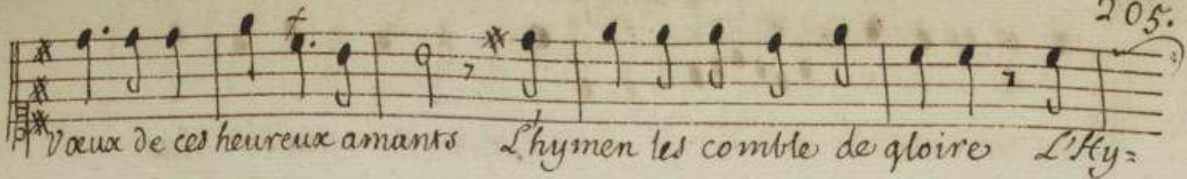 205.
Vœux de ces heureux amants L'hymen les comble de gloire L'Hy=